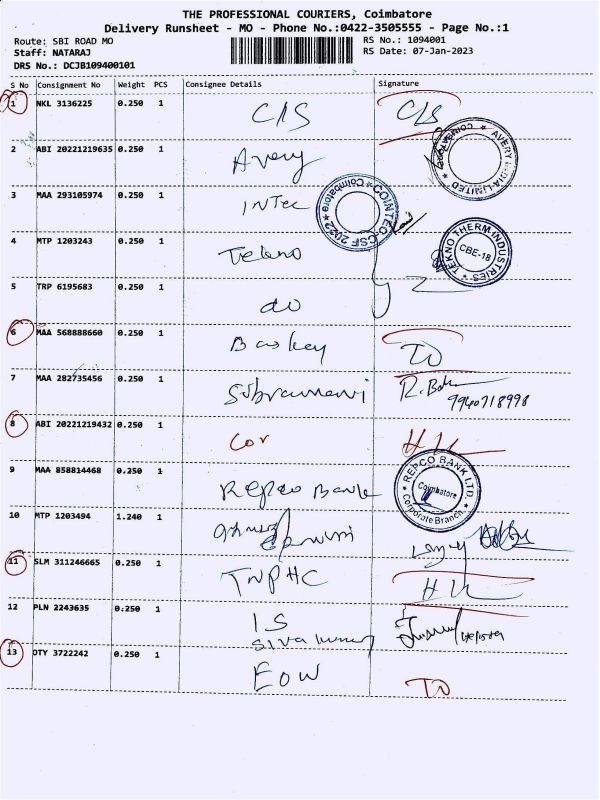 THE PROFESSIONAL COURIERS, Coimbatore
Delivery Runsheet - MO - Phone No.:0422-3505555 - Page No.:1
Route: SBI ROAD MO
RS No.: 1094001
Staff: NATARAJ
RS Date: 07-Jan-2023
DRS No.: DCJB109400101
S No Consignment No Weight PCS Consignee Details Signature
1 NKL 3136225 0.250 1 C/S C/S
2 ABI 20221219635 0.250 1 Avery
AVERY INDIA LIMITED
3 MAA 293105974 0.250 1 INTec
COINTEC CSF 2022 * Coimbatore *
4 MTP 1203243 0.250 1 Tekno
TEKNO THERM INDUSTRIES * CBE-18
5 TRP 6195683 0.250 1 do
6 MAA 568888660 0.250 1 TD
7 MAA 282735456 0.250 1
9940718998
8 ABI 20221219432 0.250 1 Cov
9 MAA 858814468 0.250 1 Repco Bank
REPCO BANK LTD Coimbatore Corporate Branch
10 MTP 1203494 1.240 1
11 SLM 311246665 0.250 1 TNPHC
12 PLN 2243635 0.250 1 IS
13 OTY 3722242 0.250 1 EOW TD